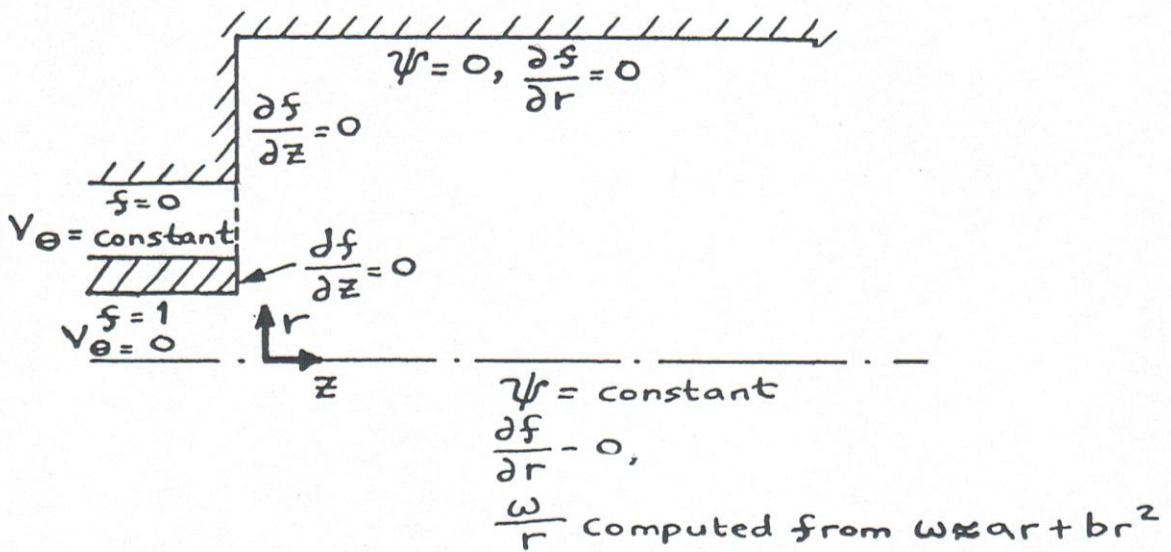 ψ = 0, ∂f/∂r = 0
∂f/∂z = 0
f = 0
Vθ = constant
∂f/∂z = 0
f = 1
Vθ = 0
r
z
ψ = constant
∂f/∂r - 0,
ω/r computed from ω ≈ ar + br²